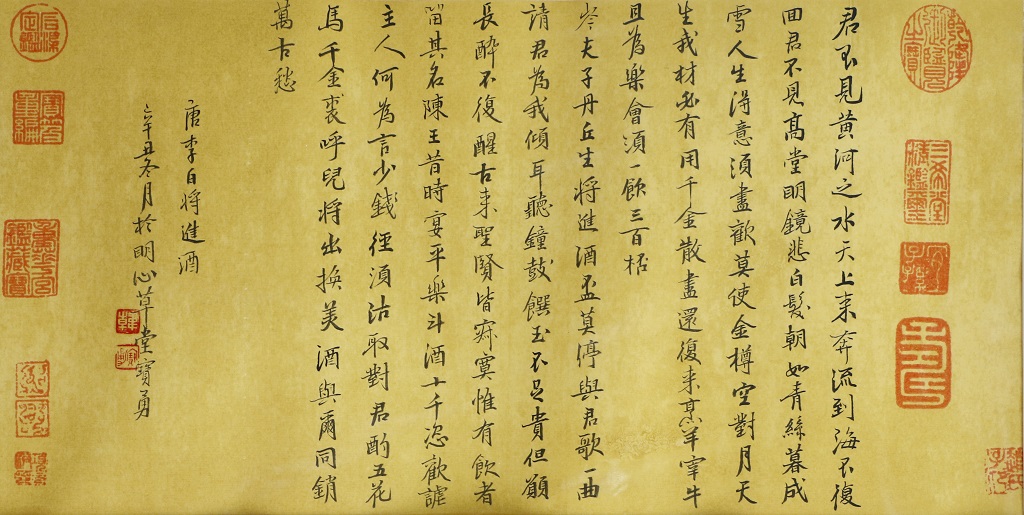 君不見黃河之水天上来奔流到海不復
回君不見高堂明鏡悲白髮朝如青絲暮成
雪人生得意須盡歡莫使金樽空對月天
生我材必有用千金散盡還復来烹羊宰牛
且為樂會須一飲三百桮
岑夫子丹丘生將進酒盃莫停與君歌一曲
請君為我傾耳聽鐘鼓饌玉不足貴但願
長醉不復醒古来聖賢皆寂寞惟有飲者
留其名陳王昔時宴平樂斗酒十千恣歡謔
主人何為言少錢徑須沽取對君酌五花
馬千金裘呼兒將出換美酒與爾同銷
萬古愁
唐李白將進酒
辛丑冬月於明心草堂寶勇
三希堂精鑑璽
宜子孫
石渠定鑑
寶笈重編